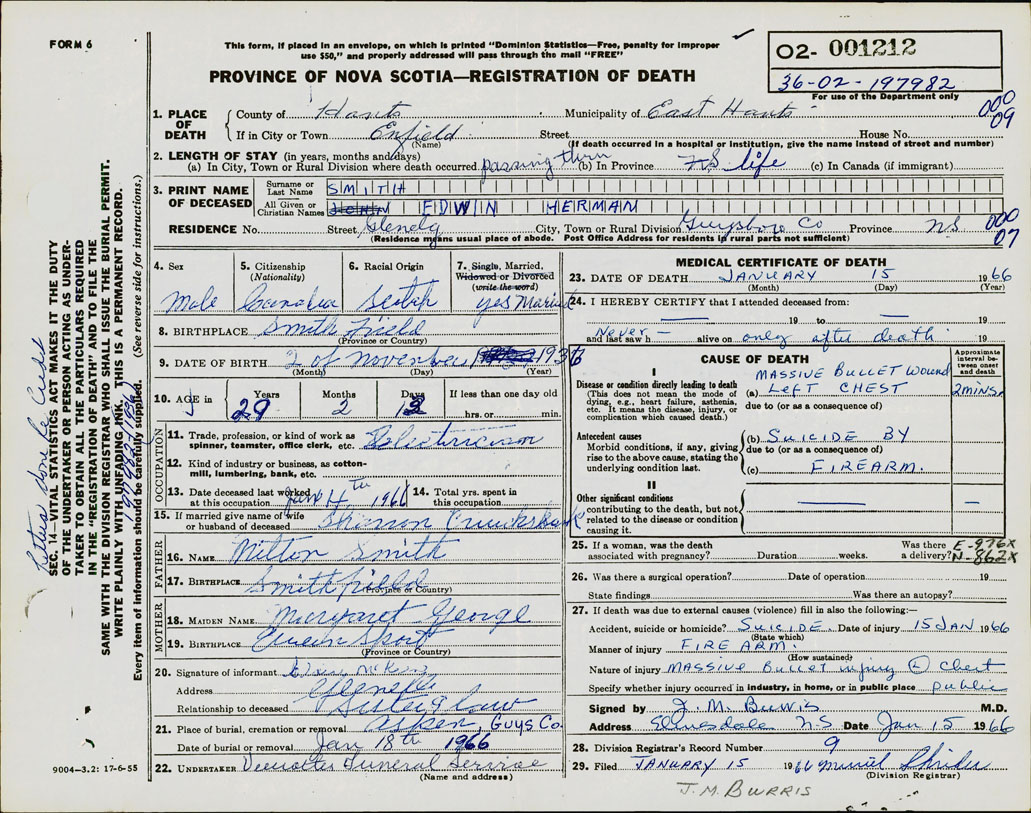 FORM 6
This form, if placed in an envelope, on which is printed "Dominion Statistics—Free, penalty for improper
use $50," and properly addressed will pass through the mail "FREE"
PROVINCE OF NOVA SCOTIA—REGISTRATION OF DEATH
O2- 001212
36-02-197982
For use of the Department only
000
09
1. PLACE OF DEATH
County of Hants Municipality of East Hants
If in City or Town Enfield Street House No.
(Name) (If death occurred in a hospital or institution, give the name instead of street and number)
2. LENGTH OF STAY (in years, months and days)
(a) In City, Town or Rural Division where death occurred passing thru (b) In Province N.S. life (c) In Canada (if immigrant)
3. PRINT NAME OF DECEASED
Surname or Last Name SMITH
All Given or Christian Names JOHN EDWIN HERMAN
RESIDENCE No. Street Glenelg City, Town or Rural Division Guysboro Co Province NS
000
07
(Residence means usual place of abode. Post Office Address for residents in rural parts not sufficient)
4. Sex
Male
5. Citizenship
(Nationality)
6. Racial Origin
Scotch
7. Single, Married,
Widowed or Divorced
(write the word)
yes Married
8. BIRTHPLACE Smith Field
(Province or Country)
9. DATE OF BIRTH 2 of November 1936
(Month) (Day) (Year)
10. AGE in Years Months Days If less than one day old
29 2 13 hrs. or min.
OCCUPATION
11. Trade, profession, or kind of work as
spinner, teamster, office clerk, etc. Electrician
12. Kind of industry or business, as cotton-
mill, lumbering, bank, etc.
13. Date deceased last worked
at this occupation Jan 4th 1966
14. Total yrs. spent in
this occupation
15. If married give name of wife
or husband of deceased Cruickshank
FATHER
16. NAME Milton Smith
17. BIRTHPLACE Smithfield
(Province or Country)
MOTHER
18. MAIDEN NAME Margaret George
19. BIRTHPLACE Queensport
(Province or Country)
20. Signature of informant
Address Glenelg
Relationship to deceased Sister in law
21. Place of burial, cremation or removal Aspen, Guys Co.
Date of burial or removal Jan 18th 1966
22. UNDERTAKER Funeral Service
(Name and address)
MEDICAL CERTIFICATE OF DEATH
23. DATE OF DEATH JANUARY 15 1966
(Month) (Day) (Year)
24. I HEREBY CERTIFY that I attended deceased from:
— 19 to — 19
and last saw h Never — alive on only after death 19
CAUSE OF DEATH
Approximate
interval be-
tween onset
and death
I
Disease or condition directly leading to death
(This does not mean the mode of
dying, e.g., heart failure, asthenia,
etc. It means the disease, injury, or
complication which caused death.)
(a) MASSIVE BULLET WOUND
LEFT CHEST 2 MINS.
due to (or as a consequence of)
Antecedent causes
Morbid conditions, if any, giving
rise to the above cause, stating the
underlying condition last.
(b) SUICIDE BY
due to (or as a consequence of)
(c) FIREARM.
II
Other significant conditions
contributing to the death, but not
related to the disease or condition
causing it.
25. If a woman, was the death
associated with pregnancy? Duration weeks. Was there
a delivery?
E-976X
N-862X
26. Was there a surgical operation? Date of operation 19
State findings Was there an autopsy?
27. If death was due to external causes (violence) fill in also the following:—
Accident, suicide or homicide? SUICIDE. Date of injury 15 JAN 1966
(State which)
Manner of injury FIRE ARM.
(How sustained)
Nature of injury MASSIVE Bullet injury (L) chest
Specify whether injury occurred in industry, in home, or in public place public
Signed by J. M. Burris M.D.
Address Elmsdale NS Date Jan 15 1966
28. Division Registrar's Record Number 9
29. Filed JANUARY 15 1966
(Division Registrar)
J.M. BURRIS
SEC. 14—VITAL STATISTICS ACT MAKES IT THE DUTY
OF THE UNDERTAKER OR PERSON ACTING AS UNDER-
TAKER TO OBTAIN ALL THE PARTICULARS REQUIRED
IN THE "REGISTRATION OF DEATH" AND TO FILE THE
SAME WITH THE DIVISION REGISTRAR WHO SHALL ISSUE THE BURIAL PERMIT.
WRITE PLAINLY WITH UNFADING INK. THIS IS A PERMANENT RECORD.
Every item of information should be carefully supplied. (See reverse side for instructions.)
9004-3.2: 17-6-55